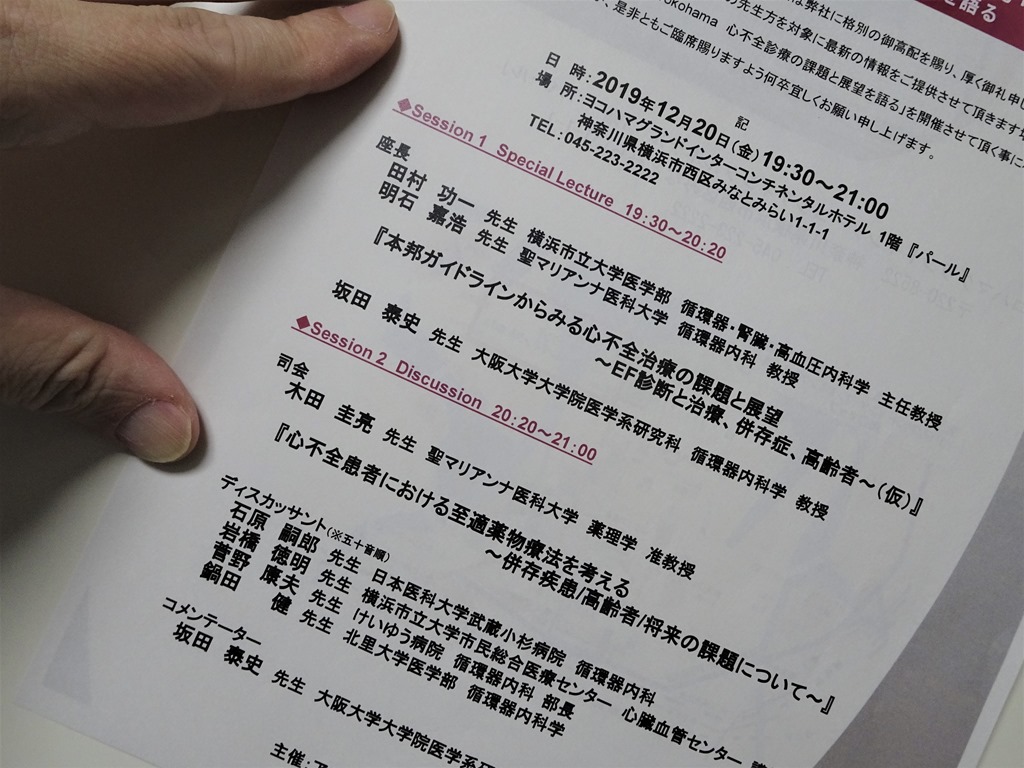 を語る
は弊社に格別の御高配を賜り、厚く御礼申し
の先生方を対象に最新の情報をご提供させて頂きます
okohama 心不全診療の課題と展望を語る」を開催させて頂く事に
が、是非ともご臨席賜りますよう何卒宜しくお願い申し上げます。
記
日 時:2019年12月20日(金)19:30～21:00
場 所:ヨコハマグランドインターコンチネンタルホテル 1階『パール』
神奈川県横浜市西区みなとみらい1-1-1
TEL:045-223-2222
◆Session 1 Special Lecture 19:30～20:20
座長
田村 功一 先生 横浜市立大学医学部 循環器・腎臓・高血圧内科学 主任教授
明石 嘉浩 先生 聖マリアンナ医科大学 循環器内科 教授
『本邦ガイドラインからみる心不全治療の課題と展望
～EF診断と治療、併存症、高齢者～(仮)』
坂田 泰史 先生 大阪大学大学院医学系研究科 循環器内科学 教授
◆Session 2 Discussion 20:20～21:00
司会
木田 圭亮 先生 聖マリアンナ医科大学 薬理学 准教授
『心不全患者における至適薬物療法を考える
～併存疾患/高齢者/将来の課題について～』
ディスカッサント(※五十音順)
石原 嗣郎 先生 日本医科大学武蔵小杉病院 循環器内科
岩橋 徳明 先生 横浜市立大学市民総合医療センター 心臓血管センター
菅野 康夫 先生 けいゆう病院 循環器内科 部長
鍋田 健 先生 北里大学医学部 循環器内科学
コメンテーター
坂田 泰史 先生 大阪大学大学院医学系研
主催: